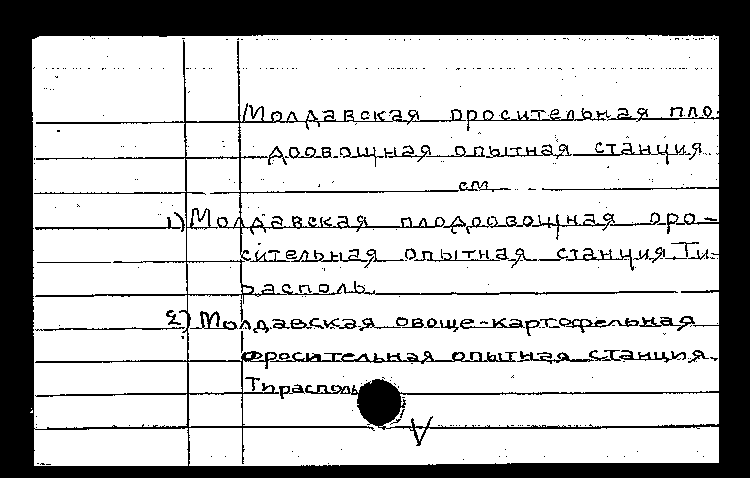 Молдавская оросительная пло-
доовощная опытная станция
см.
1) Молдавская плодоовощная оро-
сительная опытная станция. Ти-
располь.
2) Молдавская овоще-картофельная
оросительная опытная станция.
Тирасполь
V